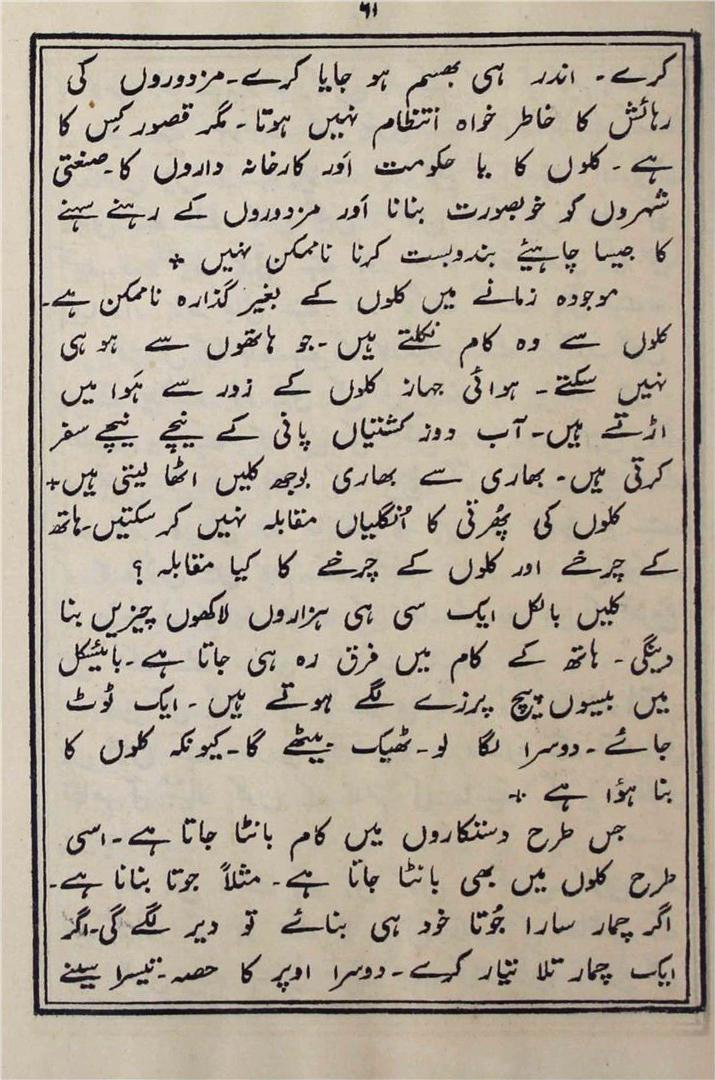 ۶۱
کرے۔ اندر ہی بھسم ہو جایا کرے۔ مزدوروں کی
رہائش کا خاطر خواہ انتظام نہیں ہوتا۔ مگر قصور کِس کا
ہے۔ کلوں کا یا حکومت اَور کارخانہ داروں کا۔ صنعتی
شہروں کو خوبصورت بنانا اَور مزدوروں کے رہنے سہنے
کا جیسا چاہیئے بندوبست کرنا ناممکن نہیں +
موجودہ زمانے میں کلوں کے بغیر گذارہ ناممکن ہے۔
کلوں سے وہ کام نکلتے ہیں۔ جو ہاتھوں سے ہو ہی
نہیں سکتے۔ ہوائی جہاز کلوں کے زور سے ہَوا میں
اڑتے ہیں۔ آب دوز کشتیاں پانی کے نیچے نیچے سفر
کرتی ہیں۔ بھاری سے بھاری بوجھ کلیں اٹھا لیتی ہیں +
کلوں کی پھُرتی کا اُنگلیاں مقابلہ نہیں کر سکتیں۔ ہاتھ
کے چرخے اور کلوں کے چرخے کا کیا مقابلہ ؟
کلیں بالکل ایک سی ہی ہزاروں لاکھوں چیزیں بنا
دینگی۔ ہاتھ کے کام میں فرق رہ ہی جاتا ہے۔ بائیسکل
میں بیسوں پیچ پرزے لگے ہوتے ہیں۔ ایک ٹوٹ
جائے۔ دوسرا لگا لو۔ ٹھیک بیٹھے گا۔ کیونکہ کلوں کا
بنا ہؤا ہے +
جس طرح دستکاروں میں کام بانٹا جاتا ہے۔ اسی
طرح کلوں میں بھی بانٹا جاتا ہے۔ مثلاً جوتا بنانا ہے۔
اگر چمار سارا جُوتا خود ہی بنائے تو دیر لگے گی۔ اگر
ایک چمار تلا تیار کرے۔ دوسرا اوپر کا حصہ۔ تیسرا سینے